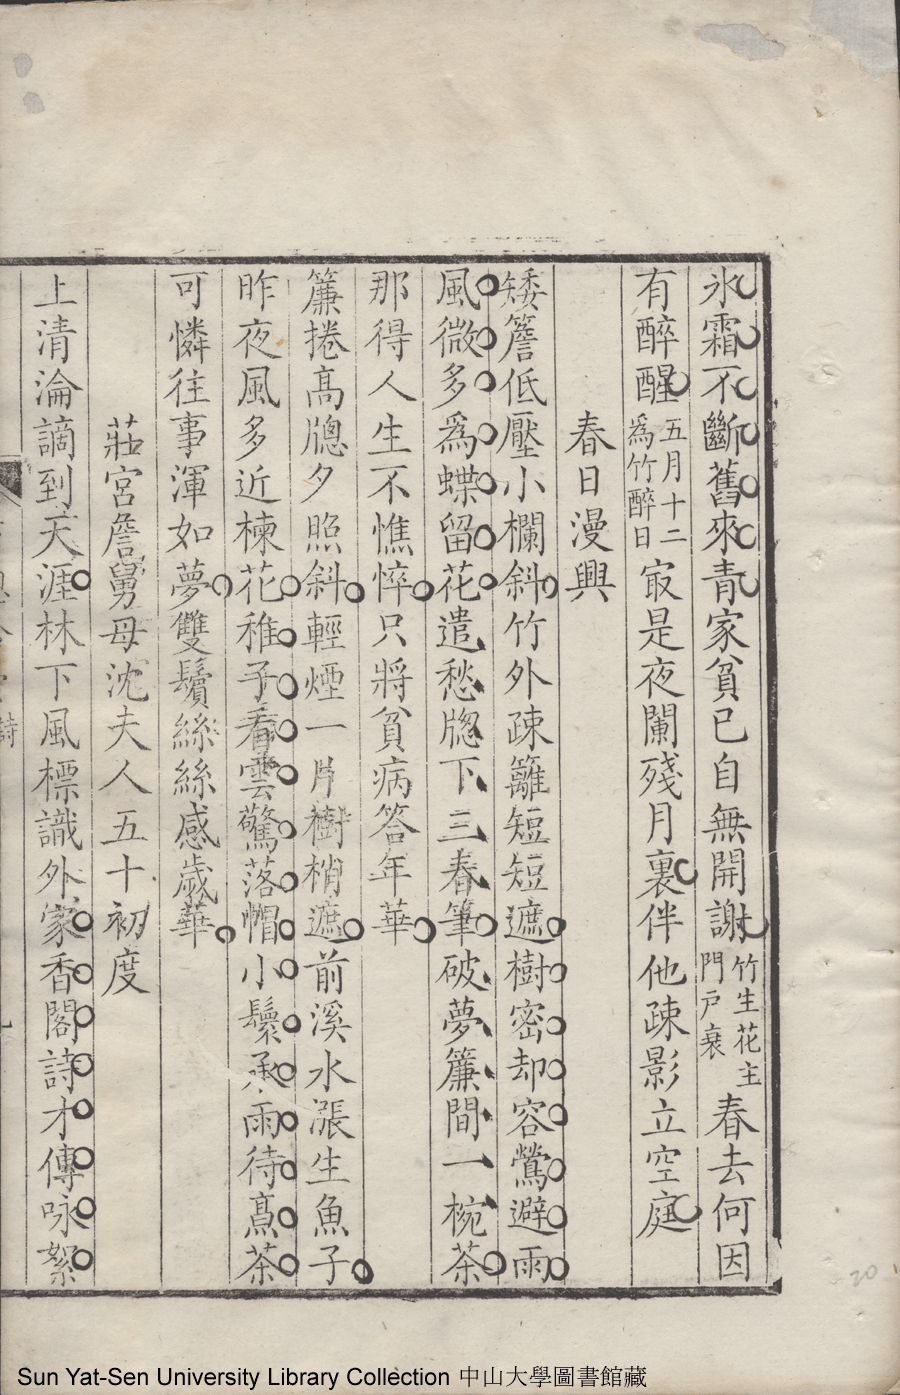 氷霜不斷舊來青家貧已自無開謝竹生花主門戸衰春去何因
有醉醒五月十二爲竹醉日㝡是夜闌殘月裏伴他疎影立空庭
春日漫興
矮簷低壓小欄斜竹外疎籬短短遮樹密却容鶯避雨
風微多爲蝶留花遣愁牎下三春筆破夢簾間一椀茶
那得人生不憔悴只將貧病答年華
簾捲高牎夕照斜輕煙一片樹梢遮前溪水漲生魚子
昨夜風多近楝花稚子看雲驚落帽小鬟承雨待烹茶
可憐往事渾如夢雙鬢絲絲感歲華
莊宮詹舅母沈夫人五十初度
上清淪謫到天涯林下風標識外家香閣詩才傳咏絮
詩
Sun Yat-Sen University Library Collection 中山大學圖書館藏
20